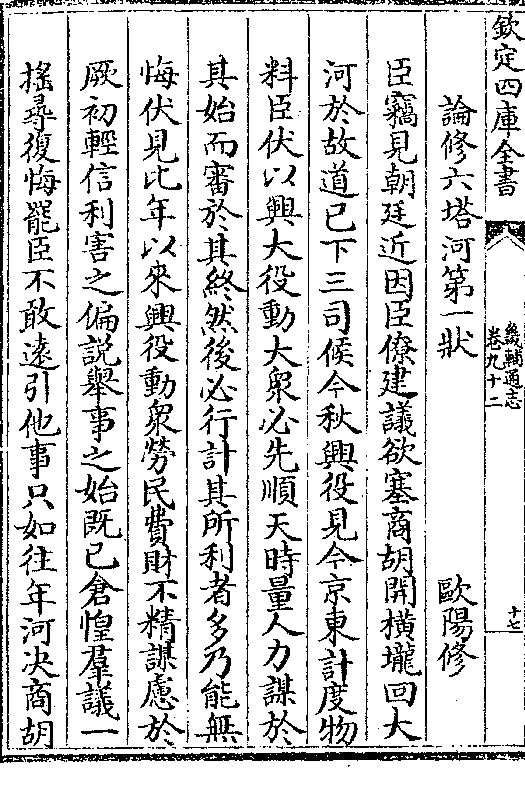 欽定四庫全書
畿輔通志
卷九十二
十七
論修六塔河第一狀 歐陽修
臣竊見朝廷近因臣僚建議欲塞商胡開橫壠回大
河於故道已下三司候今秋興役見今京東計度物
料臣伏以興大役動大衆必先順天時量人力謀於
其始而審於其終然後必行計其所利者多乃能無
悔伏見比年以來興役動衆勞民費財不精謀慮於
厥初輕信利害之偏說舉事之始既已倉惶羣議一
搖尋復悔罷臣不敢遠引他事只如往年河決商胡